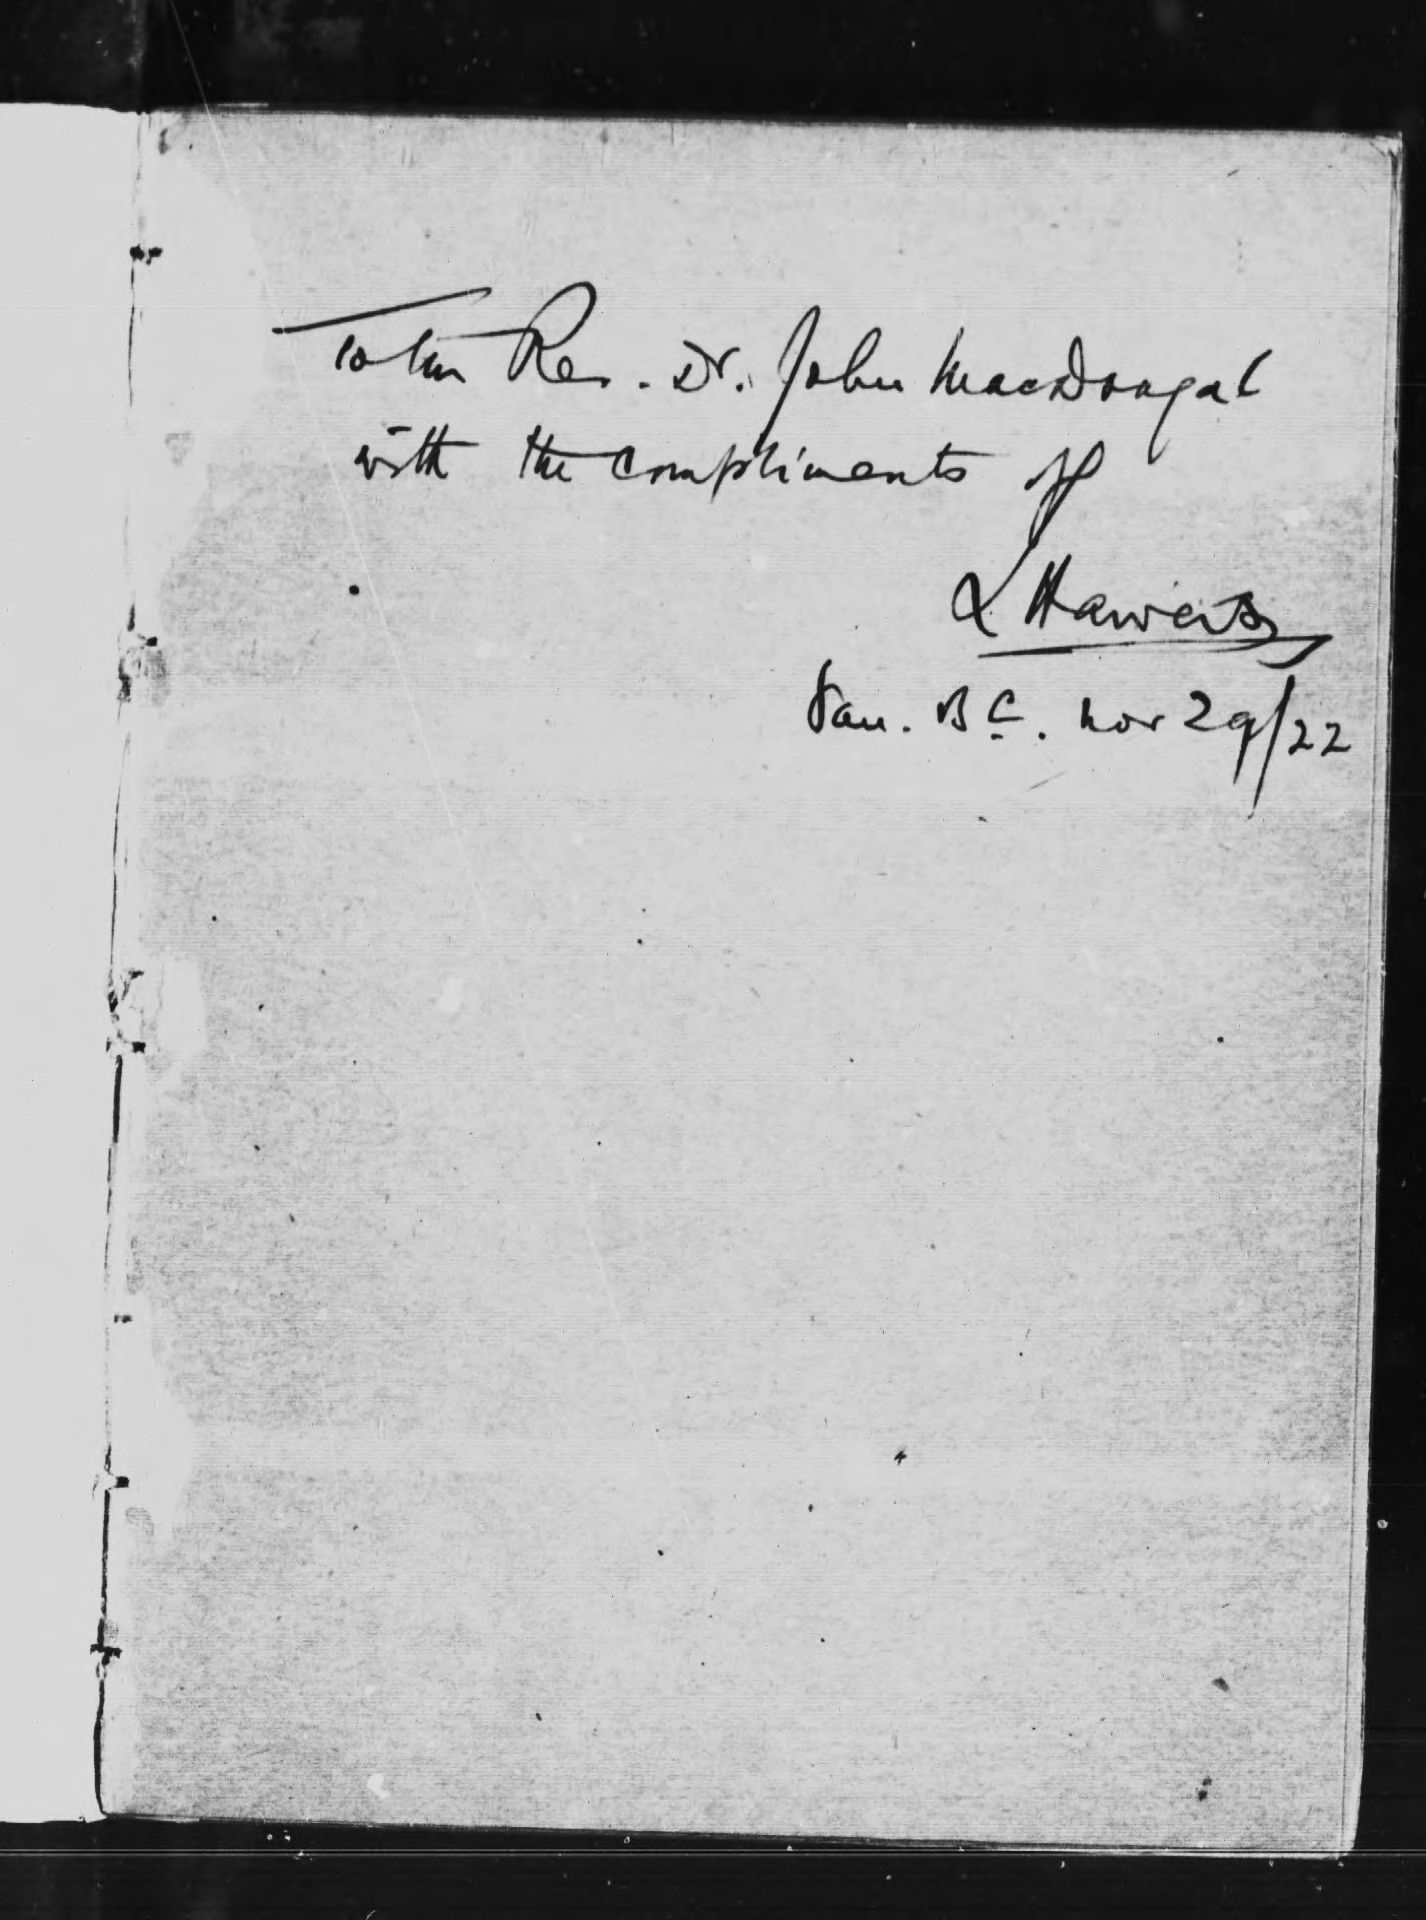 To the Rev. Dr. John MacDougal
with the compliments of
L Haweis
Van. B C. Nov 29/22